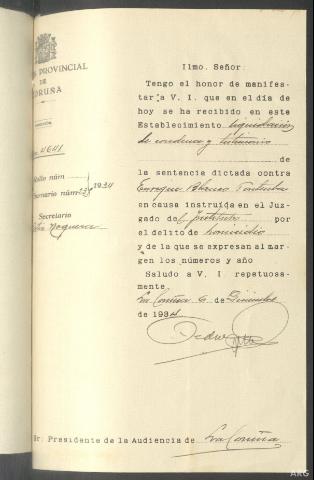 PROVINCIAL
DE
CORUÑA
4641
Rollo núm
Sumario núm 1934
Secretario
Noguera
Ilmo. Señor:
Tengo el honor de manifes-
tar a V. I. que en el día de
hoy se ha recibido en este
Establecimiento liquidación
de condena y testimonio
de
la sentencia dictada contra
Enrique Blanco
en causa instruída en el Juz-
gado de por
el delito de homicidio
y de la que se expresan al mar-
gen los números y año
Saludo a V. I. repetuosa-
mente.
La Coruña 6 de Diciembre
de 1934
Pedro
Sr. Presidente de la Audiencia de La Coruña
ARG